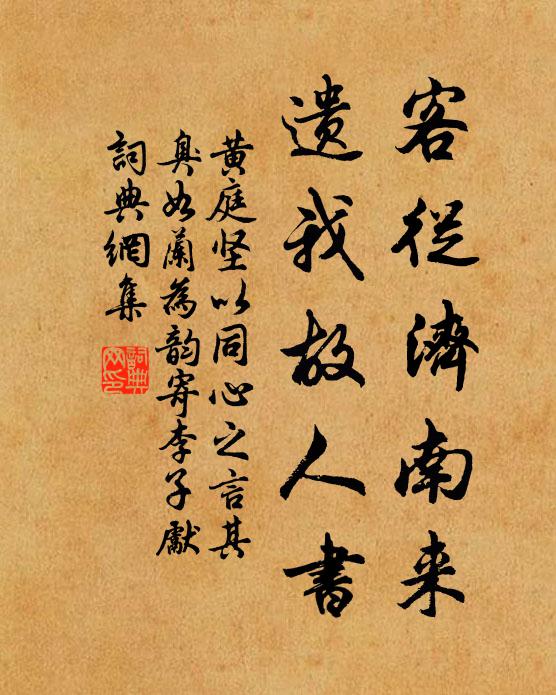 客從濟南来
遺我故人書
黄庭坚以同心之言其
臭如蘭為韵寄李子獻
詞典網集
詞典网印